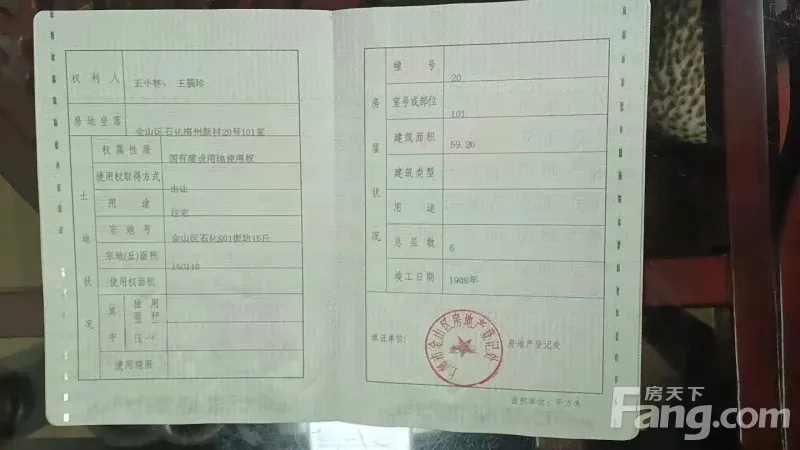 权利人 王小林，王
房地坐落 金山区石化梅州新村20号101室
土地状况
权属性质 国有建设用地使用权
使用权取得方式 出让
用途 住宅
宗地号 金山区石化801街坊15丘
宗地(丘)面积 160118
使用权面积
其中
独用面积
使用期限
房屋状况
幢号 20
室号或部位 101
建筑面积 59.26
建筑类型
用途
总层数 6
竣工日期 1988年
填证单位: 房地产登记处
上海市金山区房地产登记处
面积单位: 平方米
房天下
Fang.com